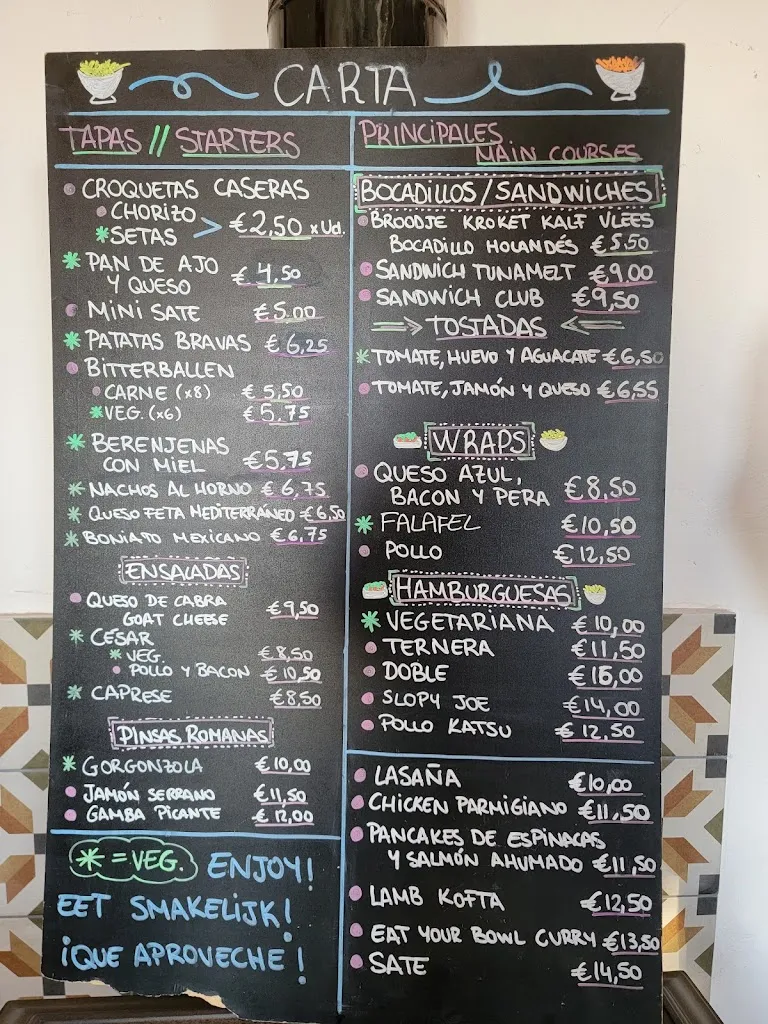 CARTA
TAPAS // STARTERS
CROQUETAS CASERAS
CHORIZO
* SETAS > €2,50 x Ud.
* PAN DE AJO
Y QUESO € 4,50
MINI SATE €5.00
* PATATAS BRAVAS € 6,25
BITTERBALLEN
CARNE (x8) € 5,50
* VEG. (x6) €5.75
* BERENJENAS
CON MIEL €5.75
* NACHOS AL HORNO € 6,75
* QUESO FETA MEDITERRÁNEO €6,50
* BONIATO MEXICANO €6.75
ENSALADAS
QUESO DE CABRA
GOAT CHEESE €9,50
* CÉSAR
* VEG. €8,50
POLLO Y BACON €10,50
* CAPRESE €8,50
PINSAS ROMANAS
* GORGONZOLA €10,00
JAMÓN SERRANO €11,50
GAMBA PICANTE €12,00
* = VEG. ENJOY!
EET SMAKELIJK!
¡QUE APROVECHE!
PRINCIPALES
MAIN COURSES
BOCADILLOS/SANDWICHES
BROODJE KROKET KALF VLEES
BOCADILLO HOLANDÉS €5.50
SANDWICH TUNAMELT €9,00
SANDWICH CLUB €9,50
TOSTADAS
* TOMATE, HUEVO Y AGUACATE €6,50
TOMATE, JAMÓN Y QUESO €6,55
WRAPS
QUESO AZUL,
BACON Y PERA €8,50
* FALAFEL €10,50
POLLO €12,50
HAMBURGUESAS
* VEGETARIANA €10,00
TERNERA €11,50
DOBLE €16,00
SLOPY JOE €14,00
POLLO KATSU €12,50
LASAÑA €10,00
CHICKEN PARMIGIANO €11,50
PANCAKES DE ESPINACAS
Y SALMÓN AHUMADO €11,50
LAMB KOFTA €12,50
EAT YOUR BOWL CURRY €13,50
SATE €14,50